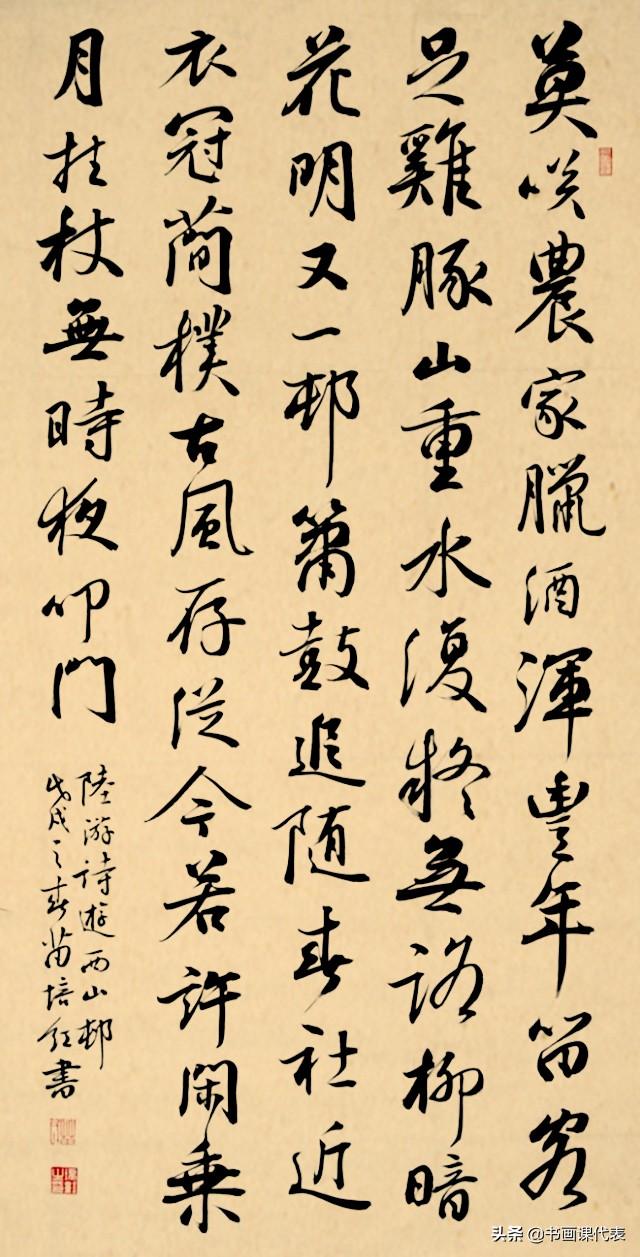 莫咲農家臘酒渾豐年留客
足雞豚山重水復疑無路柳暗
花明又一邨簫鼓追随春社近
衣冠簡樸古風存從今若許閑乘
月拄杖無時夜叩門
陸游詩遊西山邨
戊戌之春苗培紅書
头条 @书画课代表